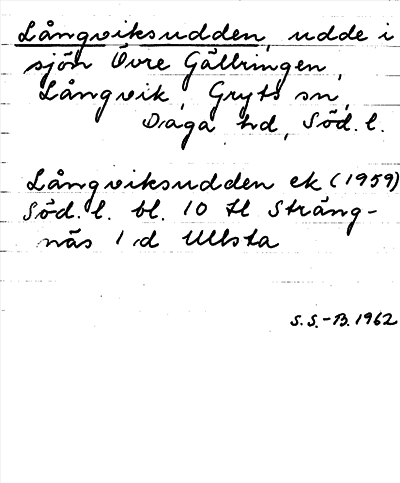 Långviksudden, udde i
sjön Övre Gällringen,
Långvik, Gryts sn,
Daga hd, Söd. l.
Långviksudden ek (1959)
Söd. l. bl. 10 tl Sträng-
näs 1 d Ullsta
S.S.-B. 1962